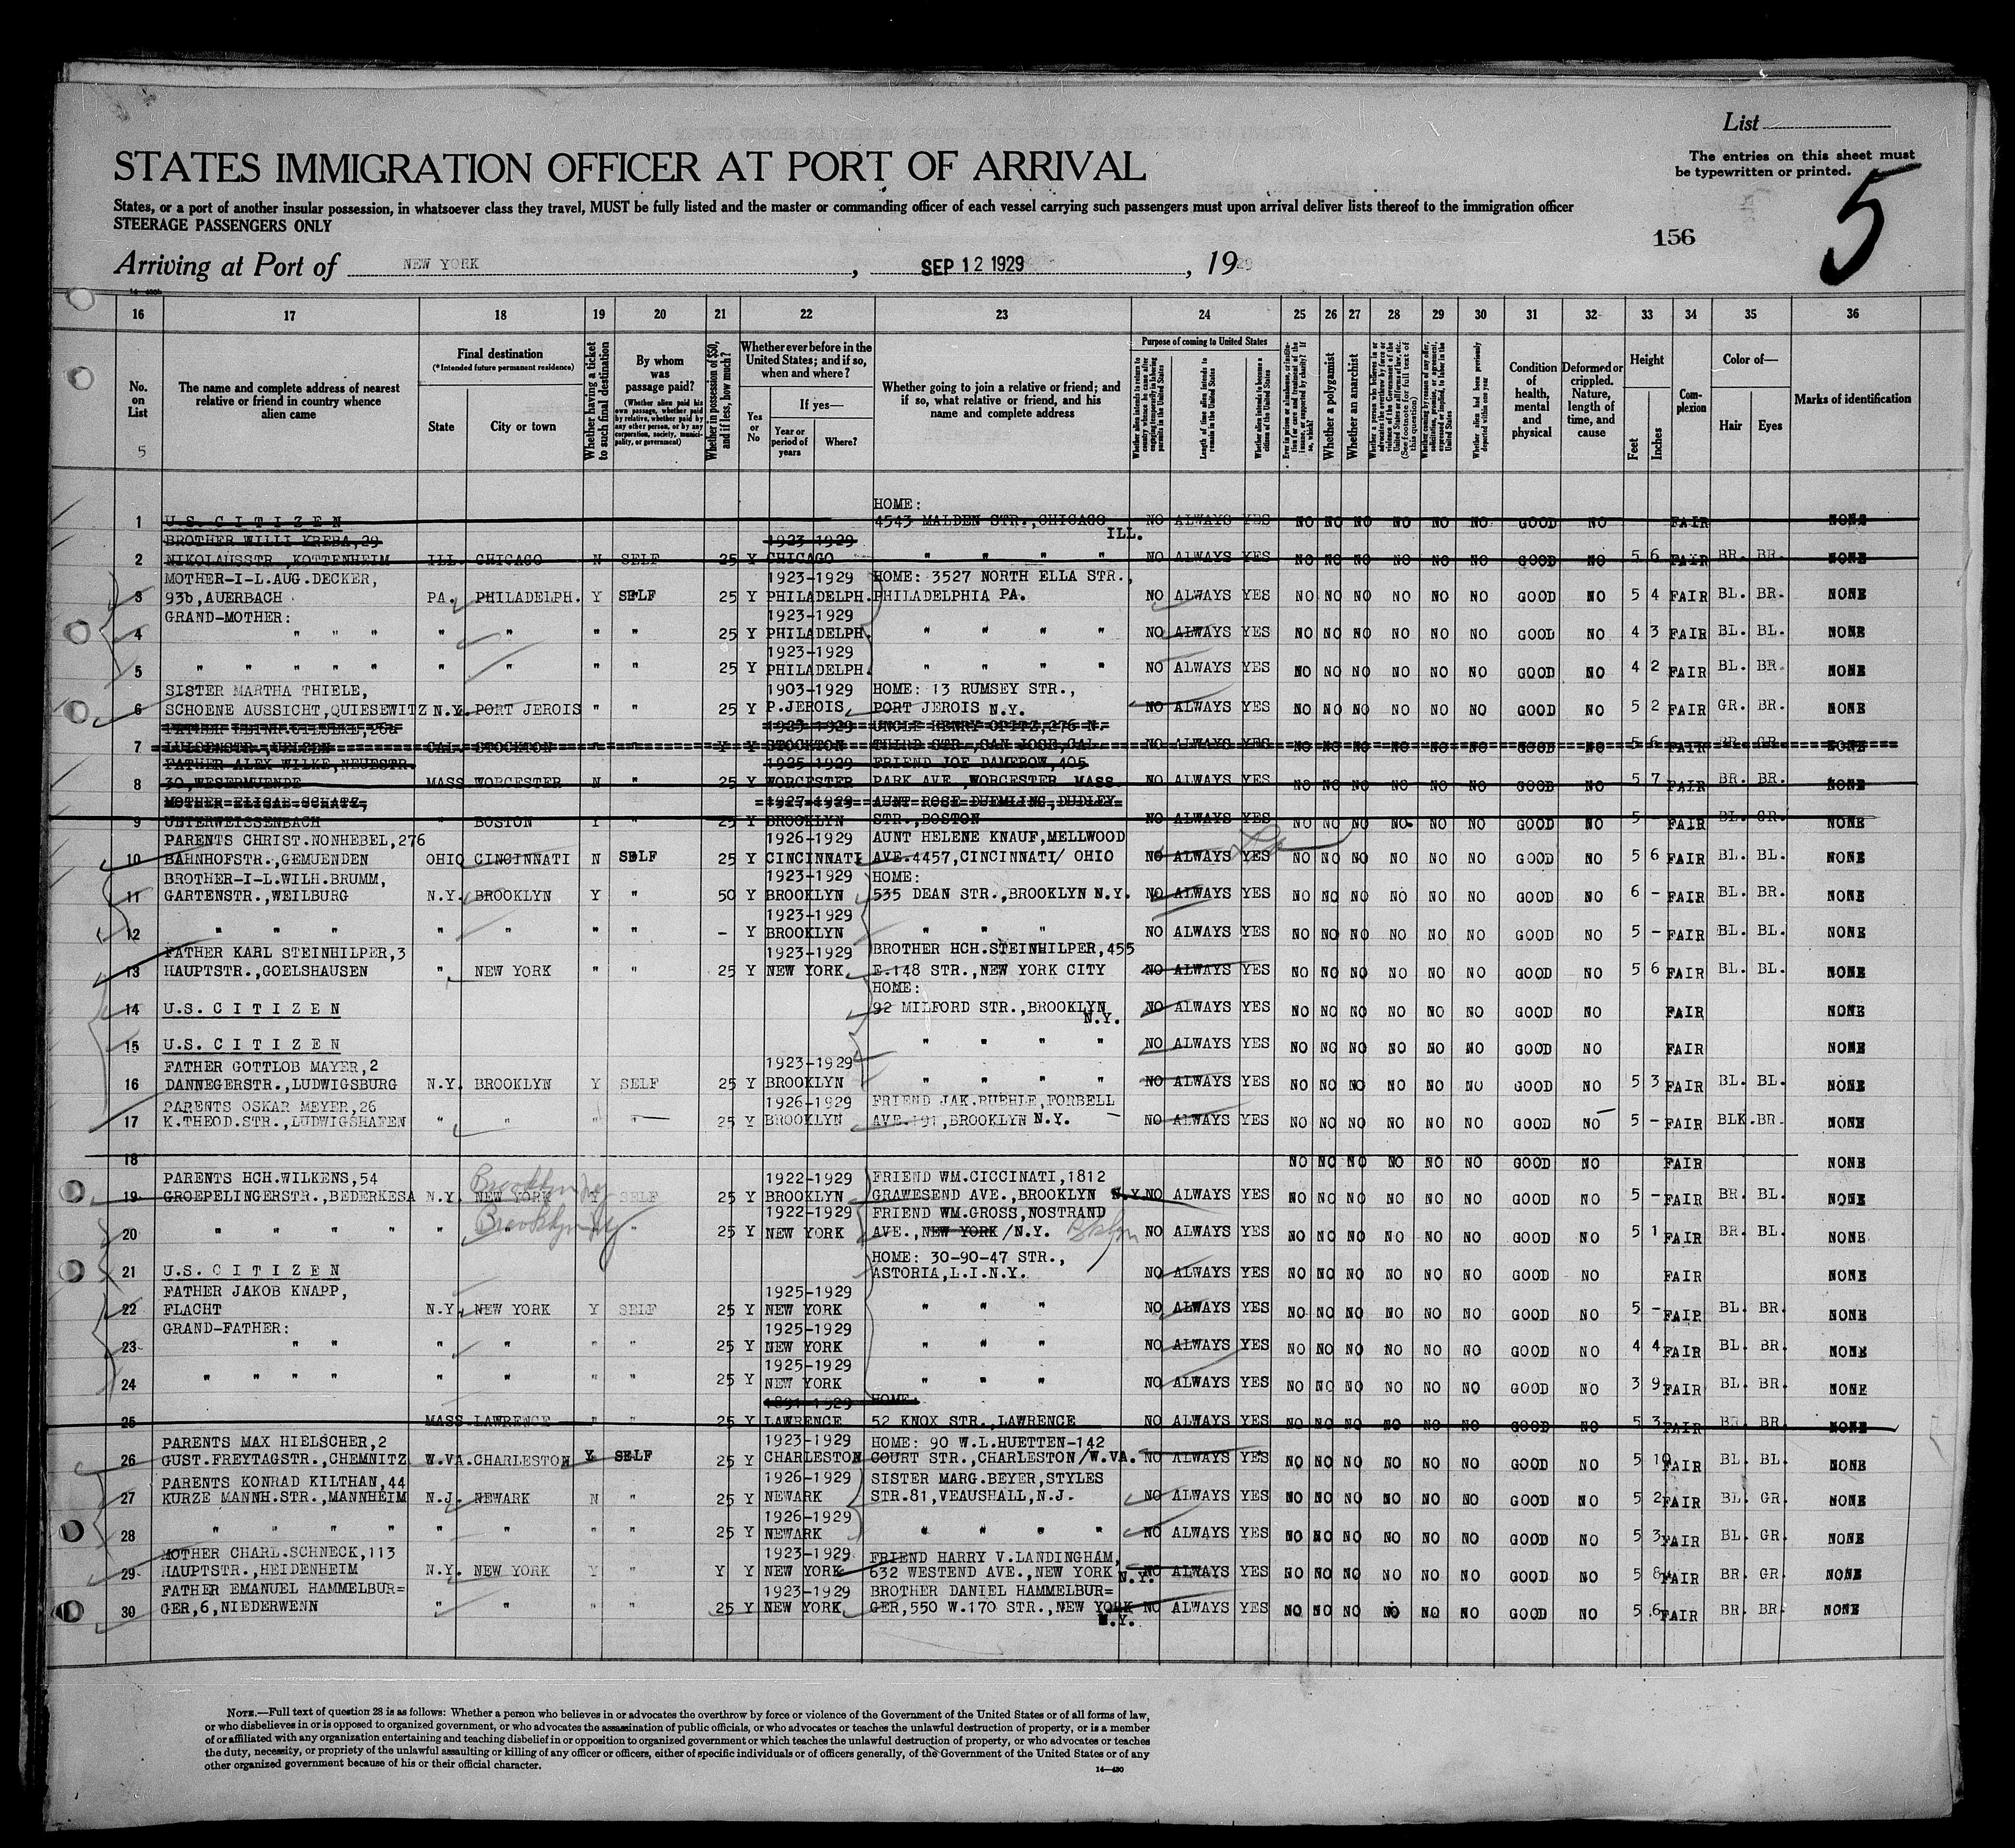 List
The entries on this sheet must
be typewritten or printed.
5
STATES IMMIGRATION OFFICER AT PORT OF ARRIVAL
States, or a port of another insular possession, in whatsoever class they travel, MUST be fully listed and the master or commanding officer of each vessel carrying such passengers must upon arrival deliver lists thereof to the immigration officer
STEERAGE PASSENGERS ONLY
156
Arriving at Port of NEW YORK, SEP 12 1929, 1929
16 17 18 19 20 21 22 23 24 25 26 27 28 29 30 31 32 33 34 35 36
No. on List
5
The name and complete address of nearest relative or friend in country whence alien came
Final destination
(*Intended future permanent residence)
State
City or town
Whether having a ticket to such final destination
By whom was passage paid?
(Whether alien paid his own passage, whether paid by relative, whether paid by any other person, or by any corporation, society, municipality, or government)
Whether in possession of $50, and if less, how much?
Whether ever before in the United States; and if so, when and where?
Yes or No
If yes—
Year or period of years
Where?
Whether going to join a relative or friend; and if so, what relative or friend, and his name and complete address
Purpose of coming to United States
Whether alien intends to return to country whence he came after engaging temporarily in laboring pursuits in the United States
Length of time alien intends to remain in the United States
Whether alien intends to become a citizen of the United States
Whether a polygamist
Whether an anarchist
Condition of health, mental and physical
Deformed or crippled. Nature, length of time, and cause
Height
Feet
Inches
Complexion
Color of—
Hair
Eyes
Marks of identification
HOME:
1 U.S. CITIZEN 4543 MALDEN STR.,CHICAGO ILL. NO ALWAYS YES NO NO NO NO NO NO GOOD NO FAIR NONE
BROTHER WILLI KREBA,29 1923-1929
2 NIKOLAUSSTR.,KOTTENHEIM ILL. CHICAGO N SELF 25 Y CHICAGO " " " " NO ALWAYS YES NO NO NO NO NO NO GOOD NO 5 6 FAIR BR. BR. NONE
MOTHER-I-L.AUG.DECKER, 1923-1929 HOME: 3527 NORTH ELLA STR.,
3 93b,AUERBACH PA. PHILADELPH. Y SELF 25 Y PHILADELPH. PHILADELPHIA PA. NO ALWAYS YES NO NO NO NO NO NO GOOD NO 5 4 FAIR BL. BR. NONE
GRAND-MOTHER: 1923-1929
4 " " " " " " " 25 Y PHILADELPH. " " " " NO ALWAYS YES NO NO NO NO NO NO GOOD NO 4 3 FAIR BL. BL. NONE
1923-1929
5 " " " " " " " " " 25 Y PHILADELPH. " " " " NO ALWAYS YES NO NO NO NO NO NO GOOD NO 4 2 FAIR BL. BR. NONE
SISTER MARTHA THIELE, 1903-1929 HOME: 13 RUMSEY STR.,
6 SCHOENE AUSSICHT,QUIESEWITZ N.Y. PORT JEROIS " " 25 Y P.JEROIS PORT JEROIS N.Y. NO ALWAYS YES NO NO NO NO NO NO GOOD NO 5 2 FAIR GR. BR. NONE
1923-1929 UNCLE HENRY OPITZ,276 N.
7 LUISENSTR.,UELZEN CAL. STOCKTON " " Y Y STOCKTON THIRD STR.,SAN JOSE,CAL. NO ALWAYS YES NO NO NO NO NO NO GOOD NO 5 6 FAIR BR. GR. NONE
FATHER ALEX WILKE,NEUESTR. 1925-1929 FRIEND JOE DAMEROW,405
8 30,WESERMUENDE MASS WORCESTER N " 25 Y WORCESTER PARK AVE.,WORCESTER MASS. NO ALWAYS YES NO NO NO NO NO NO GOOD NO 5 7 FAIR BR. BR. NONE
MOTHER ELISAB.SCHATZ, 1927-1929 AUNT ROSE DUEMLING,DUDLEY
9 UNTERWEISSENBACH " BOSTON Y " 25 Y BROOKLYN STR.,BOSTON NO ALWAYS YES NO NO NO NO NO NO GOOD NO 5 - FAIR BL. GR. NONE
PARENTS CHRIST.NONHEBEL,276 1926-1929 AUNT HELENE KNAUF,MELLWOOD
10 BAHNHOFSTR.,GEMUENDEN OHIO CINCINNATI N SELF 25 Y CINCINNATI AVE.4457,CINCINNATI/ OHIO NO ALWAYS YES NO NO NO NO NO NO GOOD NO 5 6 FAIR BL. BL. NONE
BROTHER-I-L.WILH.BRUMM, 1923-1929 HOME:
11 GARTENSTR.,WEILBURG N.Y. BROOKLYN Y " 50 Y BROOKLYN 535 DEAN STR.,BROOKLYN N.Y. NO ALWAYS YES NO NO NO NO NO NO GOOD NO 6 - FAIR BL. BR. NONE
1923-1929
12 " " " " " " " - Y BROOKLYN " " " NO ALWAYS YES NO NO NO NO NO NO GOOD NO 5 - FAIR BL. BL. NONE
FATHER KARL STEINHILPER,3 1923-1929 BROTHER HCH.STEINHILPER,455
13 HAUPTSTR.,GOELSHAUSEN " NEW YORK " " 25 Y NEW YORK E.148 STR.,NEW YORK CITY NO ALWAYS YES NO NO NO NO NO NO GOOD NO 5 6 FAIR BL. BL. NONE
HOME:
14 U.S. CITIZEN 92 MILFORD STR.,BROOKLYN N.Y. NO ALWAYS YES NO NO NO NO NO NO GOOD NO FAIR NONE
15 U.S. CITIZEN " " " " NO ALWAYS YES NO NO NO NO NO NO GOOD NO FAIR NONE
FATHER GOTTLOB MAYER,2 1923-1929
16 DANNEGERSTR.,LUDWIGSBURG N.Y. BROOKLYN Y SELF 25 Y BROOKLYN " " " " NO ALWAYS YES NO NO NO NO NO NO GOOD NO 5 3 FAIR BL. BL. NONE
PARENTS OSKAR MEYER,26 1926-1929 FRIEND JAK.RUEHLE,FORBELL
17 K.THEOD.STR.,LUDWIGSHAFEN " " " " 25 Y BROOKLYN AVE.191,BROOKLYN N.Y. NO ALWAYS YES NO NO NO NO NO NO GOOD NO 5 - FAIR BLK. BR. NONE
18 NO NO NO NO NO NO GOOD NO FAIR NONE
PARENTS HCH.WILKENS,54 Brooklyn NY 1922-1929 FRIEND WM.CICCINATI,1812
19 GROEPELINGERSTR.,BEDERKESA N.Y. NEW YORK Y SELF 25 Y BROOKLYN GRAWESEND AVE.,BROOKLYN N.Y. NO ALWAYS YES NO NO NO NO NO NO GOOD NO 5 - FAIR BR. BL. NONE
Brooklyn NY 1922-1929 FRIEND WM.GROSS,NOSTRAND
20 " " " " " " " 25 Y NEW YORK AVE.,NEW YORK/N.Y. Bklyn NO ALWAYS YES NO NO NO NO NO NO GOOD NO 5 1 FAIR BR. BL. NONE
HOME: 30-90-47 STR.,
21 U.S. CITIZEN ASTORIA,L.I.N.Y. NO ALWAYS YES NO NO NO NO NO NO GOOD NO FAIR NONE
FATHER JAKOB KNAPP, 1925-1929
22 FLACHT N.Y. NEW YORK Y SELF 25 Y NEW YORK " " " NO ALWAYS YES NO NO NO NO NO NO GOOD NO 5 - FAIR BL. BR. NONE
GRAND-FATHER: 1925-1929
23 " " " " " " 25 Y NEW YORK " " " NO ALWAYS YES NO NO NO NO NO NO GOOD NO 4 4 FAIR BL. BR. NONE
1925-1929
24 " " " " " " " " 25 Y NEW YORK " " " NO ALWAYS YES NO NO NO NO NO NO GOOD NO 3 9 FAIR BL. BR. NONE
1891-1929 HOME:
25 MASS. LAWRENCE " " 25 Y LAWRENCE 52 KNOX STR.,LAWRENCE NO ALWAYS YES NO NO NO NO NO NO GOOD NO 5 3 FAIR BR. BR. NONE
PARENTS MAX HIELSCHER,2 1923-1929 HOME: 90 W.L.HUETTEN-142
26 GUST.FREYTAGSTR.,CHEMNITZ W.VA. CHARLESTON Y SELF 25 Y CHARLESTON COURT STR.,CHARLESTON/W.VA. NO ALWAYS YES NO NO NO NO NO NO GOOD NO 5 10 FAIR BL. BL. NONE
PARENTS KONRAD KILTHAN,44 1926-1929 SISTER MARG.BEYER,STYLES
27 KURZE MANNH.STR.,MANNHEIM N.J. NEWARK N " 25 Y NEWARK STR.81,VEAUSHALL,N.J. NO ALWAYS YES NO NO NO NO NO NO GOOD NO 5 2 FAIR BL. GR. NONE
1926-1929
28 " " " " " " " " 25 Y NEWARK " " " " NO ALWAYS YES NO NO NO NO NO NO GOOD NO 5 3 FAIR BL. GR. NONE
MOTHER CHARL.SCHNECK,113 1923-1929 FRIEND HARRY V.LANDINGHAM,
29 HAUPTSTR.,HEIDENHEIM N.Y. NEW YORK Y " Y Y NEW YORK 632 WESTEND AVE.,NEW YORK N.Y. NO ALWAYS YES NO NO NO NO NO NO GOOD NO 5 8 FAIR BR. GR. NONE
FATHER EMANUEL HAMMELBUR= 1923-1929 BROTHER DANIEL HAMMELBUR=
30 GER,6,NIEDERWENN " " " " 25 Y NEW YORK GER,550 W.170 STR.,NEW YORK N.Y. NO ALWAYS YES NO NO NO NO NO NO GOOD NO 5 6 FAIR BR. BR. NONE
NOTE.—Full text of question 28 is as follows: Whether a person who believes in or advocates the overthrow by force or violence of the Government of the United States or of all forms of law,
or who disbelieves in or is opposed to organized government, or who advocates the assassination of public officials, or who advocates or teaches the unlawful destruction of property, or is a member
of or affiliated with any organization entertaining and teaching disbelief in or opposition to organized government or which teaches the unlawful destruction of property, or who advocates or teaches
the duty, necessity, or propriety of the unlawful assaulting or killing of any officer or officers, either of specific individuals or of officers generally, of the Government of the United States or of any
other organized government because of his or their official character.
14—430